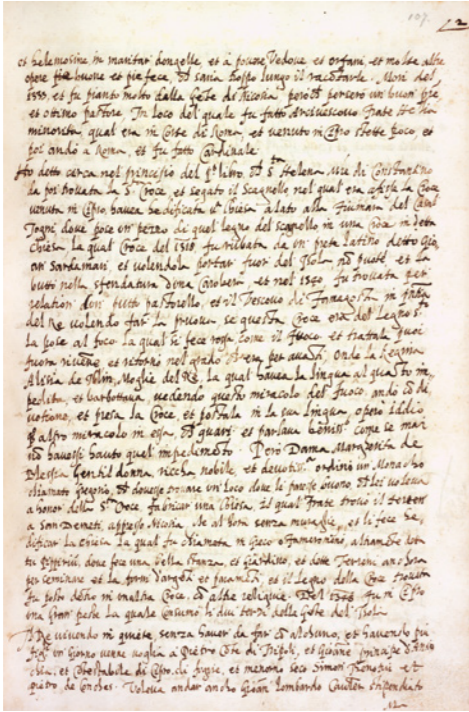 107.
et helemosine in maritar dongelle, et à povere Vedove et orfani, et molte altre
opere buone et pie fece, saria troppo lungo il racotarle. Morì del
et fu pianto molto dalla Gete di Nicosia perochè persero un buon pre
et ottimo pastore. In loco del quale fu fatto Arcivescovo frate Helia
minorita, qual era in Corte di Roma, et venuto in Cipro stette poco, et
poi andò a Roma, et fu fatto Cardinale.
Ho detto cerca nel principio del p.º libro, Sª Helena, Mre di Constantino
da poi trovata la Sª Croce, et segato il Scagnello nel qual era la Croce
venuta in Cipro, havea hedificata una Chiesa a lato alla fiumara del Casal
Togni dove pose un pezzo di quel legno del scagnello in una Croce in detta
Chiesa, la qual Croce del 1318 fu rubata da un prete latino detto Gio
an Sardamari, et volendola portar fuor del Isola nò puote, et la
buttò nella d'una Carobera, et nel 1340 fu trovata per
relation d'un putto pastorello, et il Vescovo di Famagosta in
del Re volendo far la pruova, se questa Croce era del Legno Sto
la pose al foco la qual si fece rossa come il fuoco et trattala puoi
fuora rivene et ritornò nel grado era per avanti. Onde la Regina
Alisia de Iblin, Moglie del Re, la qual havea la lingua alquanto im
pedita, et barbottava vedendo questo miracolo del fuoco, andò cò di
votione, et presa la Croce, et postala in la sua lingua, operò Iddio
altro miracolo in essa, guarì et parlava beniss.º come se mai
nò havesse havuto qual impedimento. Però Dama Margarita de
Blessia Gentildonna, riccha nobile, et devotiss.ª ordinò un Monacho
chiamato Gregorio, dovesse trovare un loco dove li paresse buono lei voleva
a honor della Sª Croce fabricar una Chiesa. Il qual frate trovò il terren
a San Demeti, appresso Nicosia, senza muraglie, et li fece he
dificar la chiesa la qual fu chiamata in Greco
dove fece una bella stanza, et giardino, et dette Terreni anchora
per seminare et la fornì d'argeti et paramèti, et il Legno della Croce trovata
fu posto detro in un'altra Croce, cò altre reliquie. Del 1348 fu in Cipro
una Gran peste la quale consumò li dui terzi della Gete del Isola.
Il Re vivendo in quiete, senza haver da far cò alchuno, et havendo più
figli un giorno venne voglia a Pietro Côte di Tripoli, et Gioane principe d'Antio
chia, et Côtestabile di Cipro, di fugire, et menorno seco Simon et
Pietro de Conches. Voleva andar ancho Gioan Lombardo stipendiato